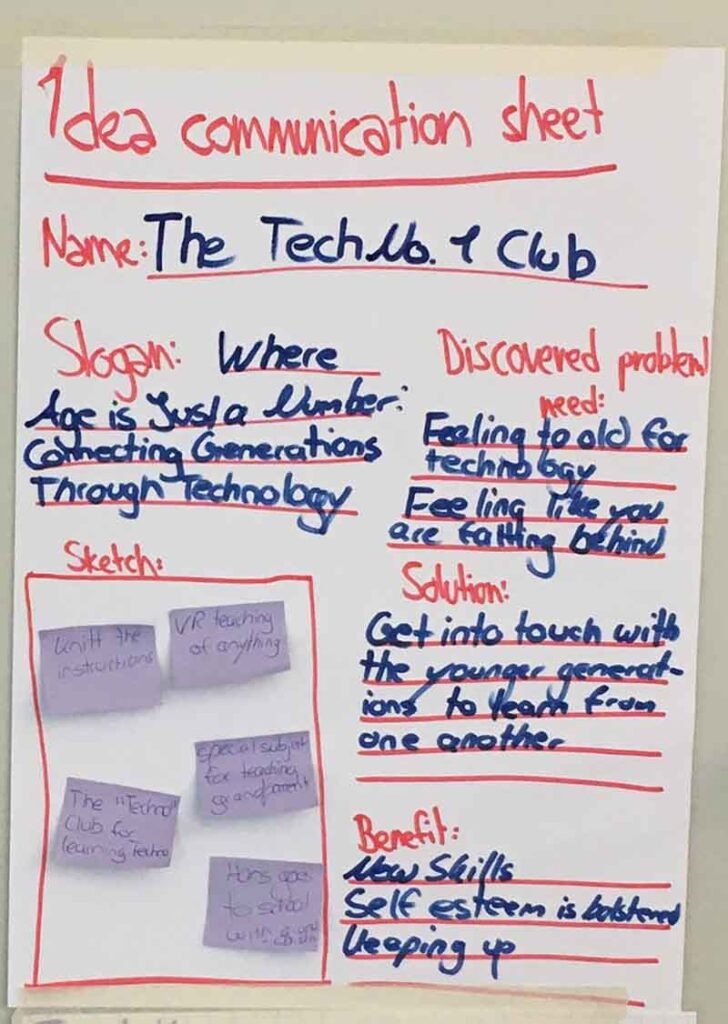 Idea communication sheet
Name: The Tech No. 1 Club
Slogan: Where
Age is Just a Number:
Connecting Generations
Through Technology
Discovered problem/
need:
Feeling to old for
technology
Feeling like you
are falling behind
Sketch:
Knitt the
instructions
VR teaching
of anything
special subject
for teaching
grandparent
The "Techno"
Club for
learning Techno
Hans goes
to school
with
Solution:
Get into touch with
the younger generat-
ions to learn from
one another
Benefit:
New Skills
Self esteem is bolstered
Keeping up